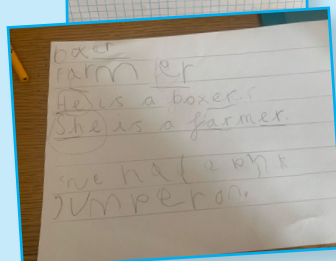 boxer
farm er
He is a boxer.
She is a farmer.
she had a pink
jumper on.